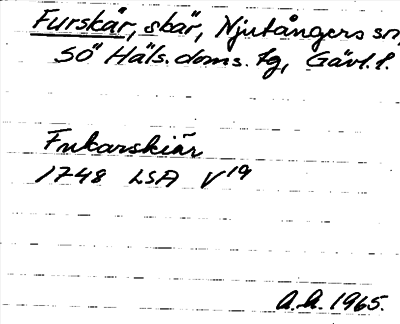 Furskär, skär, Njutångers sn,
SÖ Häls. doms. tg, Gävl. l.
Fukarskiär
1748 LSA V¹⁹
A.A. 1965.